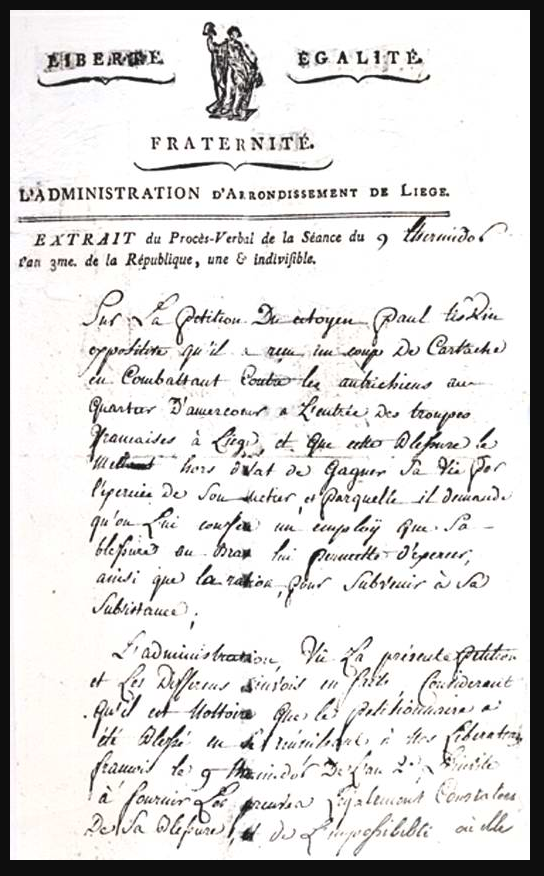 LIBERTÉ. ÉGALITÉ.
FRATERNITÉ.
L'ADMINISTRATION D'ARRONDISSEMENT DE LIEGE.
EXTRAIT du Procès-Verbal de la Séance du 9 thermidor
l'an 3me. de la République, une & indivisible.
Sur La petition Du citoyen paul
qu'il a reçu un coup De Cartache
en Combattant Contre les autrichiens au
quartier D'amercoeur a L'entrée des troupes
françaises à Liege, et que cette Blessure le
hors d'état de gagner Sa Vie par
de Son metier, et parquelle il demande
qu'on Lui un employ que Sa
blessure au Bras lui permette d'exercer,
ainsi que la ration, pour Subvenir à Sa
Subsistance ;
L'administration, Vu La présente petition
et Les Differens Considerant
qu'il est Nottoire que le petitionnaire a
été Blessé en se à Nos Liberateurs
francois le 9 thermidor De L'an 2e, L'invite
à fournir Les preuves Légalement Constatées
De Sa Blessure, et de L'impossibilité où elle